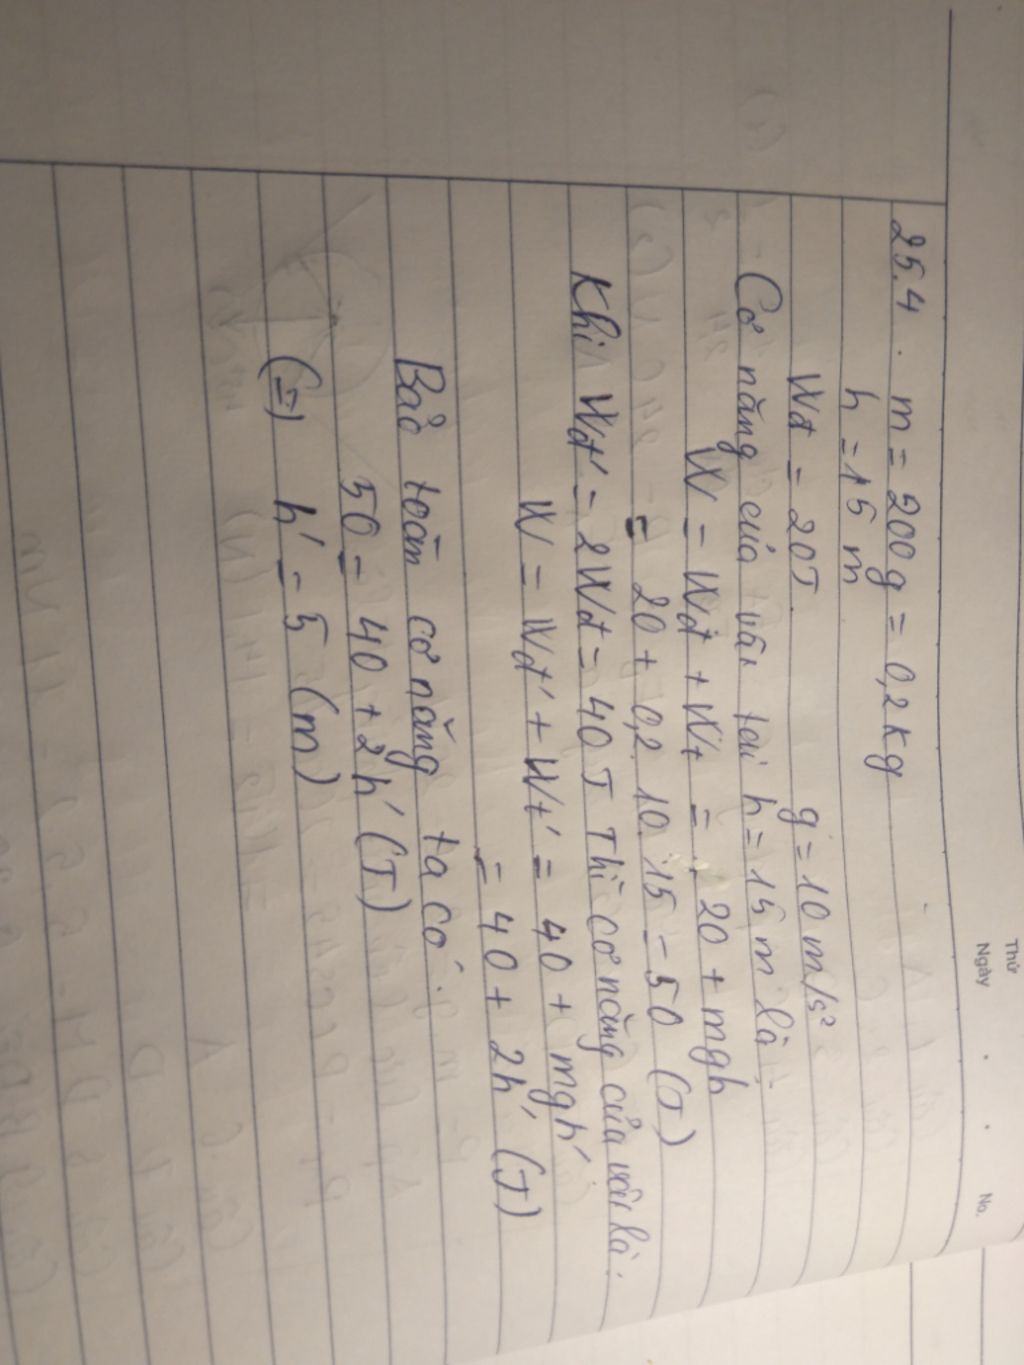 Thứ
Ngày . . No.
25.4 . m = 200g = 0,2kg
h = 15 m
Wđ = 20J g = 10 m/s²
Cơ năng của vật tại h = 15 m là :
W = Wđ + Wt = 20 + mgh
= 20 + 0,2. 10. 15 = 50 (J)
Khi Wđ' = 2Wđ = 40 J Thì cơ năng của vật là :
W = Wđ' + Wt' = 40 + mgh'
= 40 + 2h' (J)
Bảo toàn cơ năng ta có :
50 = 40 + 2h' (J)
(=) h' = 5 (m)